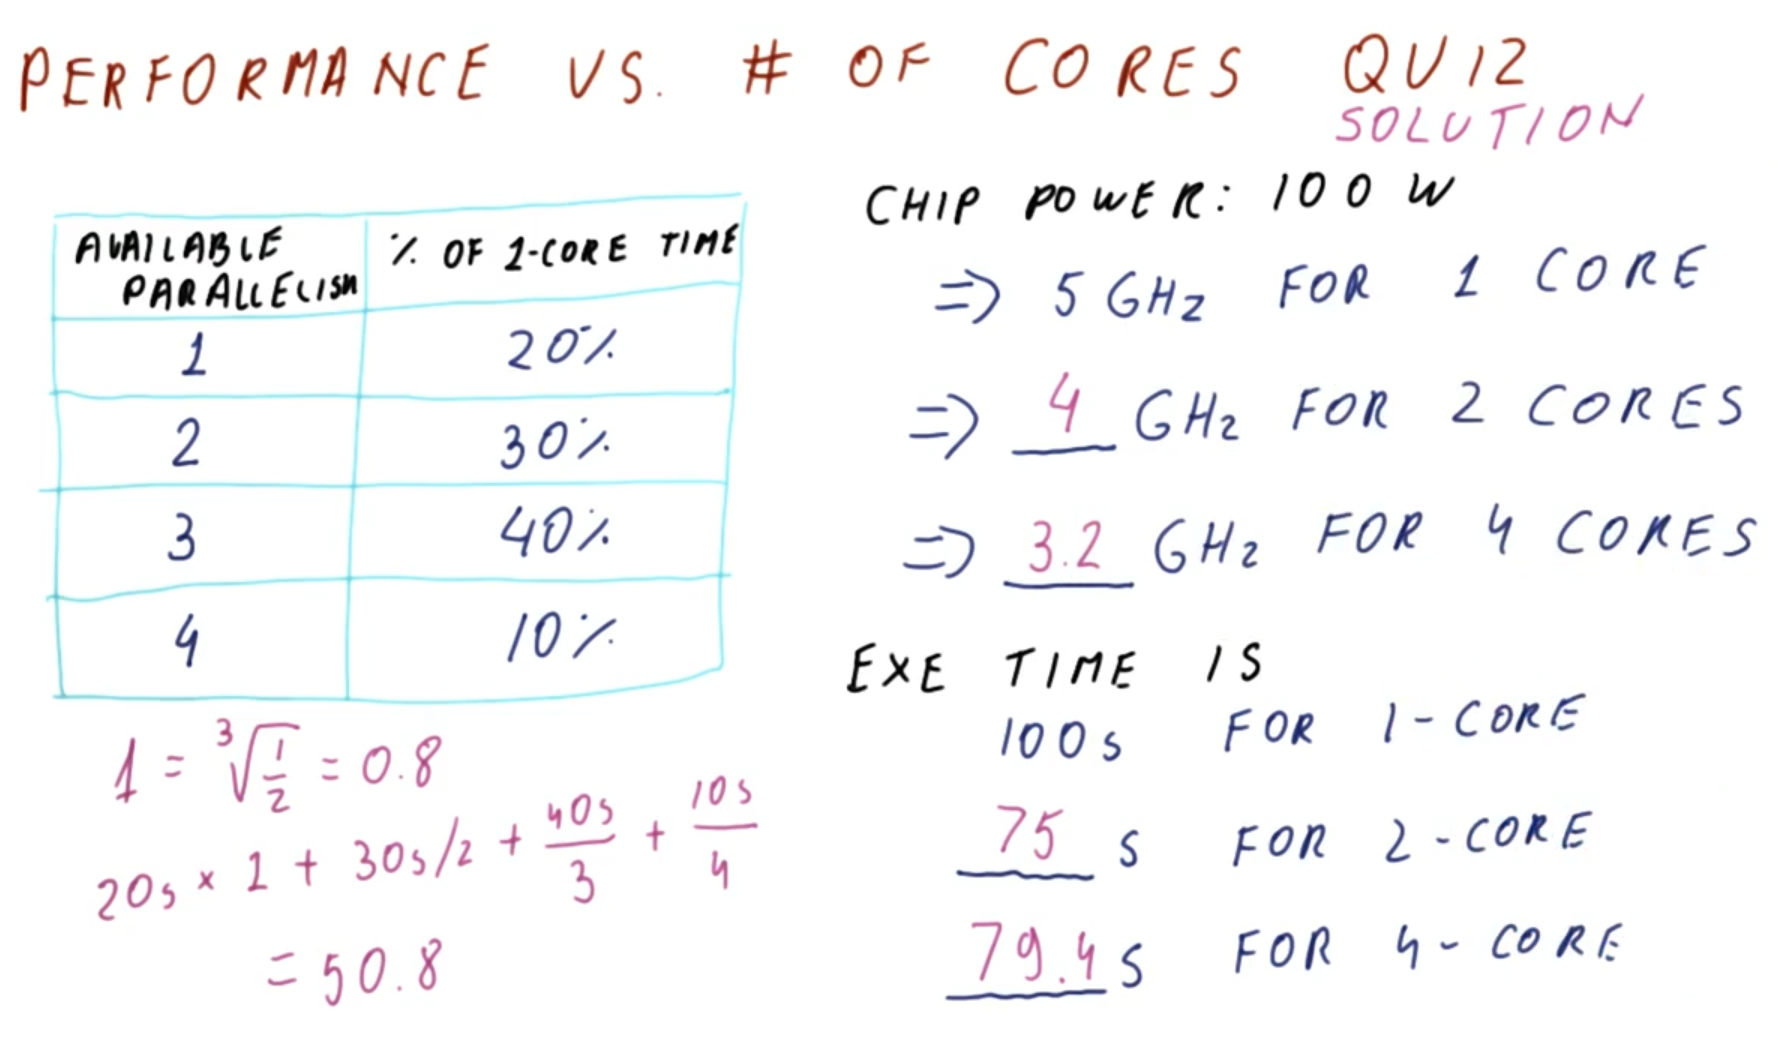 PERFORMANCE VS. # OF CORES QUIZ
SOLUTION
AVAILABLE PARALLELISM % OF 1-CORE TIME
1 20%
2 30%
3 40%
4 10%
1 = ∛(1/2) = 0.8
20s × 1 + 30s/2 + 40s/3 + 10s/4
= 50.8
CHIP POWER: 100 W
=> 5 GHz FOR 1 CORE
=> 4 GHz FOR 2 CORES
=> 3.2 GHz FOR 4 CORES
EXE TIME IS
100s FOR 1-CORE
75 s FOR 2-CORE
79.4 s FOR 4-CORE